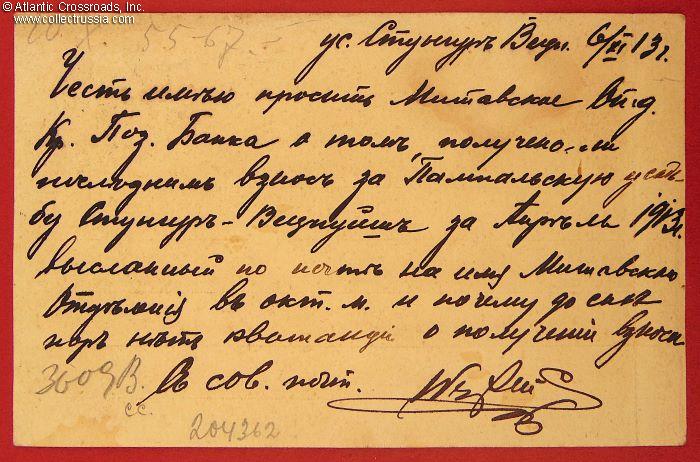 © Atlantic Crossroads, Inc.
www.collectrussia.com
55-67.-
ус. Стункуръ Вецп. 6/XI 13 г.
Честь имѣю просить Митавское Отд.
Кр. Поз. Банка о томъ, получено-ли
послѣднимъ взносъ за Пампальскую усадь
бу Стункуръ-Вецпуишъ за Апрѣль 1913 г.
высланный по почтѣ на имя Митавскаго
Отдѣленія въ окт. м. и почему до сихъ
поръ нѣтъ квитанціи о полученіи взноса
3609В. Съ сов. почт.
с.с.
204362